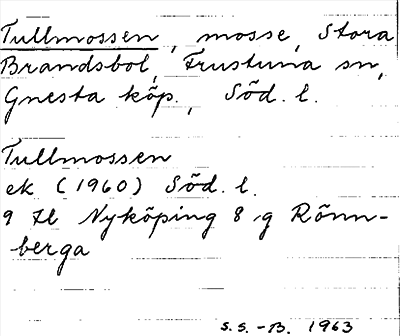 Tullmossen, mosse, Stora
Brandsbol, Frustuna sn,
Gnesta köp., Söd. l.
Tullmossen
ek (1960) Söd. l.
9 H Nyköping 8 g Rönn-
berga
S.S.-B. 1963